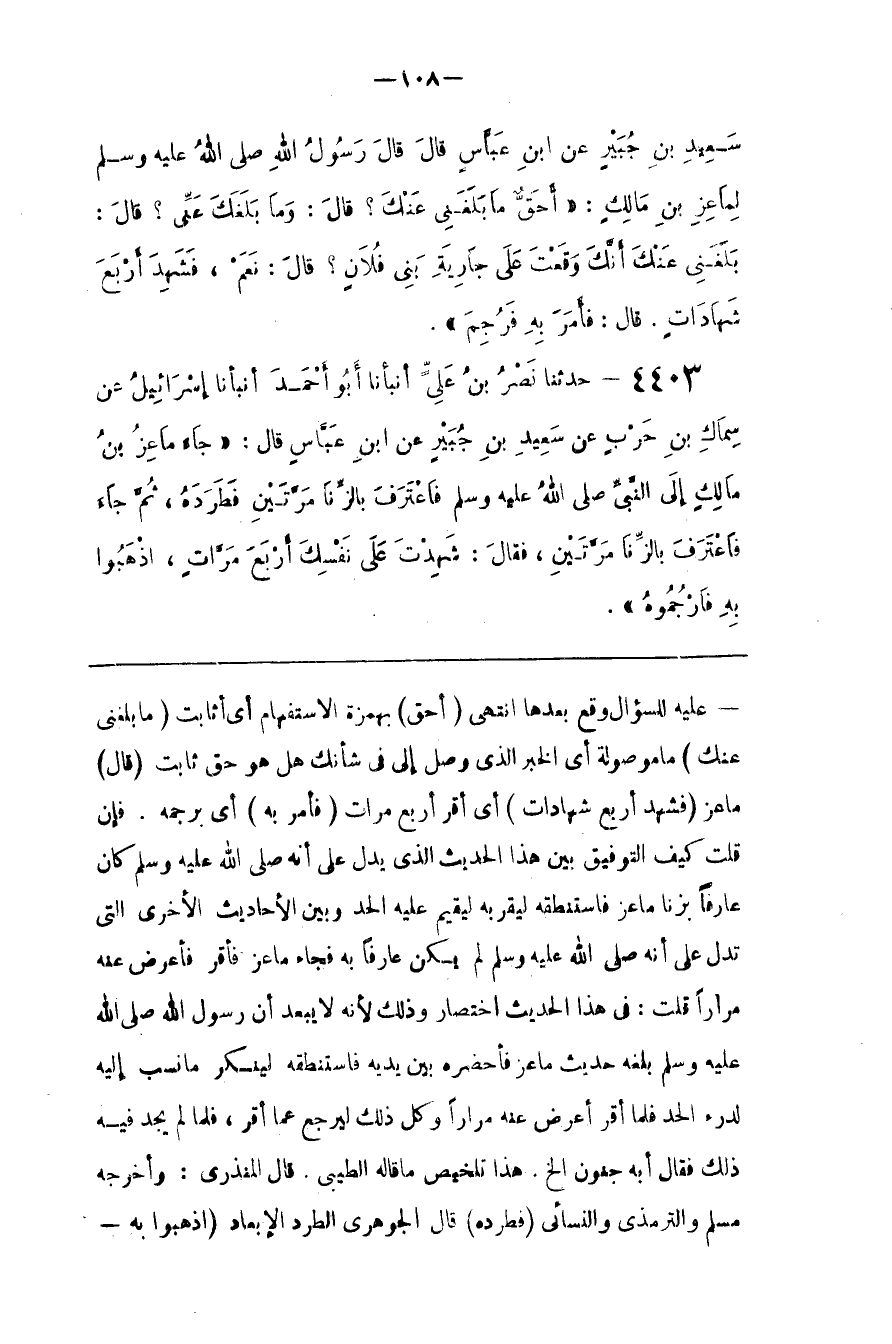 — ١٠٨ —
سَـعِيدِ بنِ جُبَيْرٍ عن ابنِ عَبَّاسٍ قالَ قالَ رَسُولُ اللهِ صلى اللهُ عليه وسـلم
لِمَاعِزِ بنِ مَالِكٍ : « أَحَقٌّ مَا بَلَغَـنِى عَنْكَ ؟ قالَ : وَمَا بَلَغَكَ عَنِّى ؟ قالَ :
بَلَغَـنِى عَنْكَ أَنَّكَ وَقَعْتَ عَلَى جَارِيَةِ بَنِى فُلَانٍ ؟ قالَ : نَعَمْ ، فَشَهِدَ أَرْبَعَ
شَهَادَاتٍ . قال : فأَمَرَ بِهِ فَرُجِمَ » .
٤٤٠٣ — حدثنا نَصْرُ بنُ عَلِيٍّ أنبأنا أَبُو أَحْمَـدَ أنبأنا إِسْرَائِيلُ عن
سِمَاكِ بنِ حَرْبٍ عن سَعِيدِ بنِ جُبَيْرٍ عن ابنِ عَبَّاسٍ قال : « جَاءَ ماعِزُ بنُ
مَالِكٍ إِلَى النَّبيِّ صلى اللهُ عليه وسلم فَاعْتَرَفَ بالزِّنَا مَرَّتَـيْنِ فَطَرَدَهُ ، ثُمَّ جَاءَ
فَاعْتَرَفَ بالزِّنَا مَرَّتَـيْنِ ، فقالَ : شَهِدْتَ عَلَى نَفْسِكَ أَرْبَعَ مَرَّاتٍ ، اذْهَبُوا
بِهِ فَارْجُمُوهُ » .
— عليه للسؤال وقع بعدها انتهى ( أحق) بهمزة الاستفهام أى أثابت ( مابلغنى
عنك ) ماموصولة أى الخبر الذى وصل إلى فى شأنك هل هو حق ثابت (قال)
ماعز (فشهد أربع شهادات ) أى أقر أربع مرات ( فأمر به ) أى برجمه . فإن
قلت كيف التوفيق بين هذا الحديث الذى يدل على أنه صلى الله عليه وسلم كان
عارفاً بزنا ماعز فاستنطقه ليقر به ليقيم عليه الحد وبين الأحاديث الأخرى التى
تدل على أنه صلى الله عليه وسلم لم يـكن عارفاً به فجاء ماعز فأقر فأعرض عنه
مراراً قلت : فى هذا الحديث اختصار وذلك لأنه لايبعد أن رسول الله صلى الله
عليه وسلم بلغه حديث ماعز فأحضره بين يديه فاستنطقه لينـكر مانسب إليه
لدرء الحد فلما أقر أعرض عنه مراراً وكل ذلك ليرجع عما أقر ، فلما لم يجد فيـه
ذلك فقال أبه جنون الخ . هذا تلخيص ماقاله الطيبى . قال المنذرى : وأخرجه
مسلم والترمذى والنسائى (فطرده) قال الجوهرى الطرد الإبعاد (اذهبوا به —